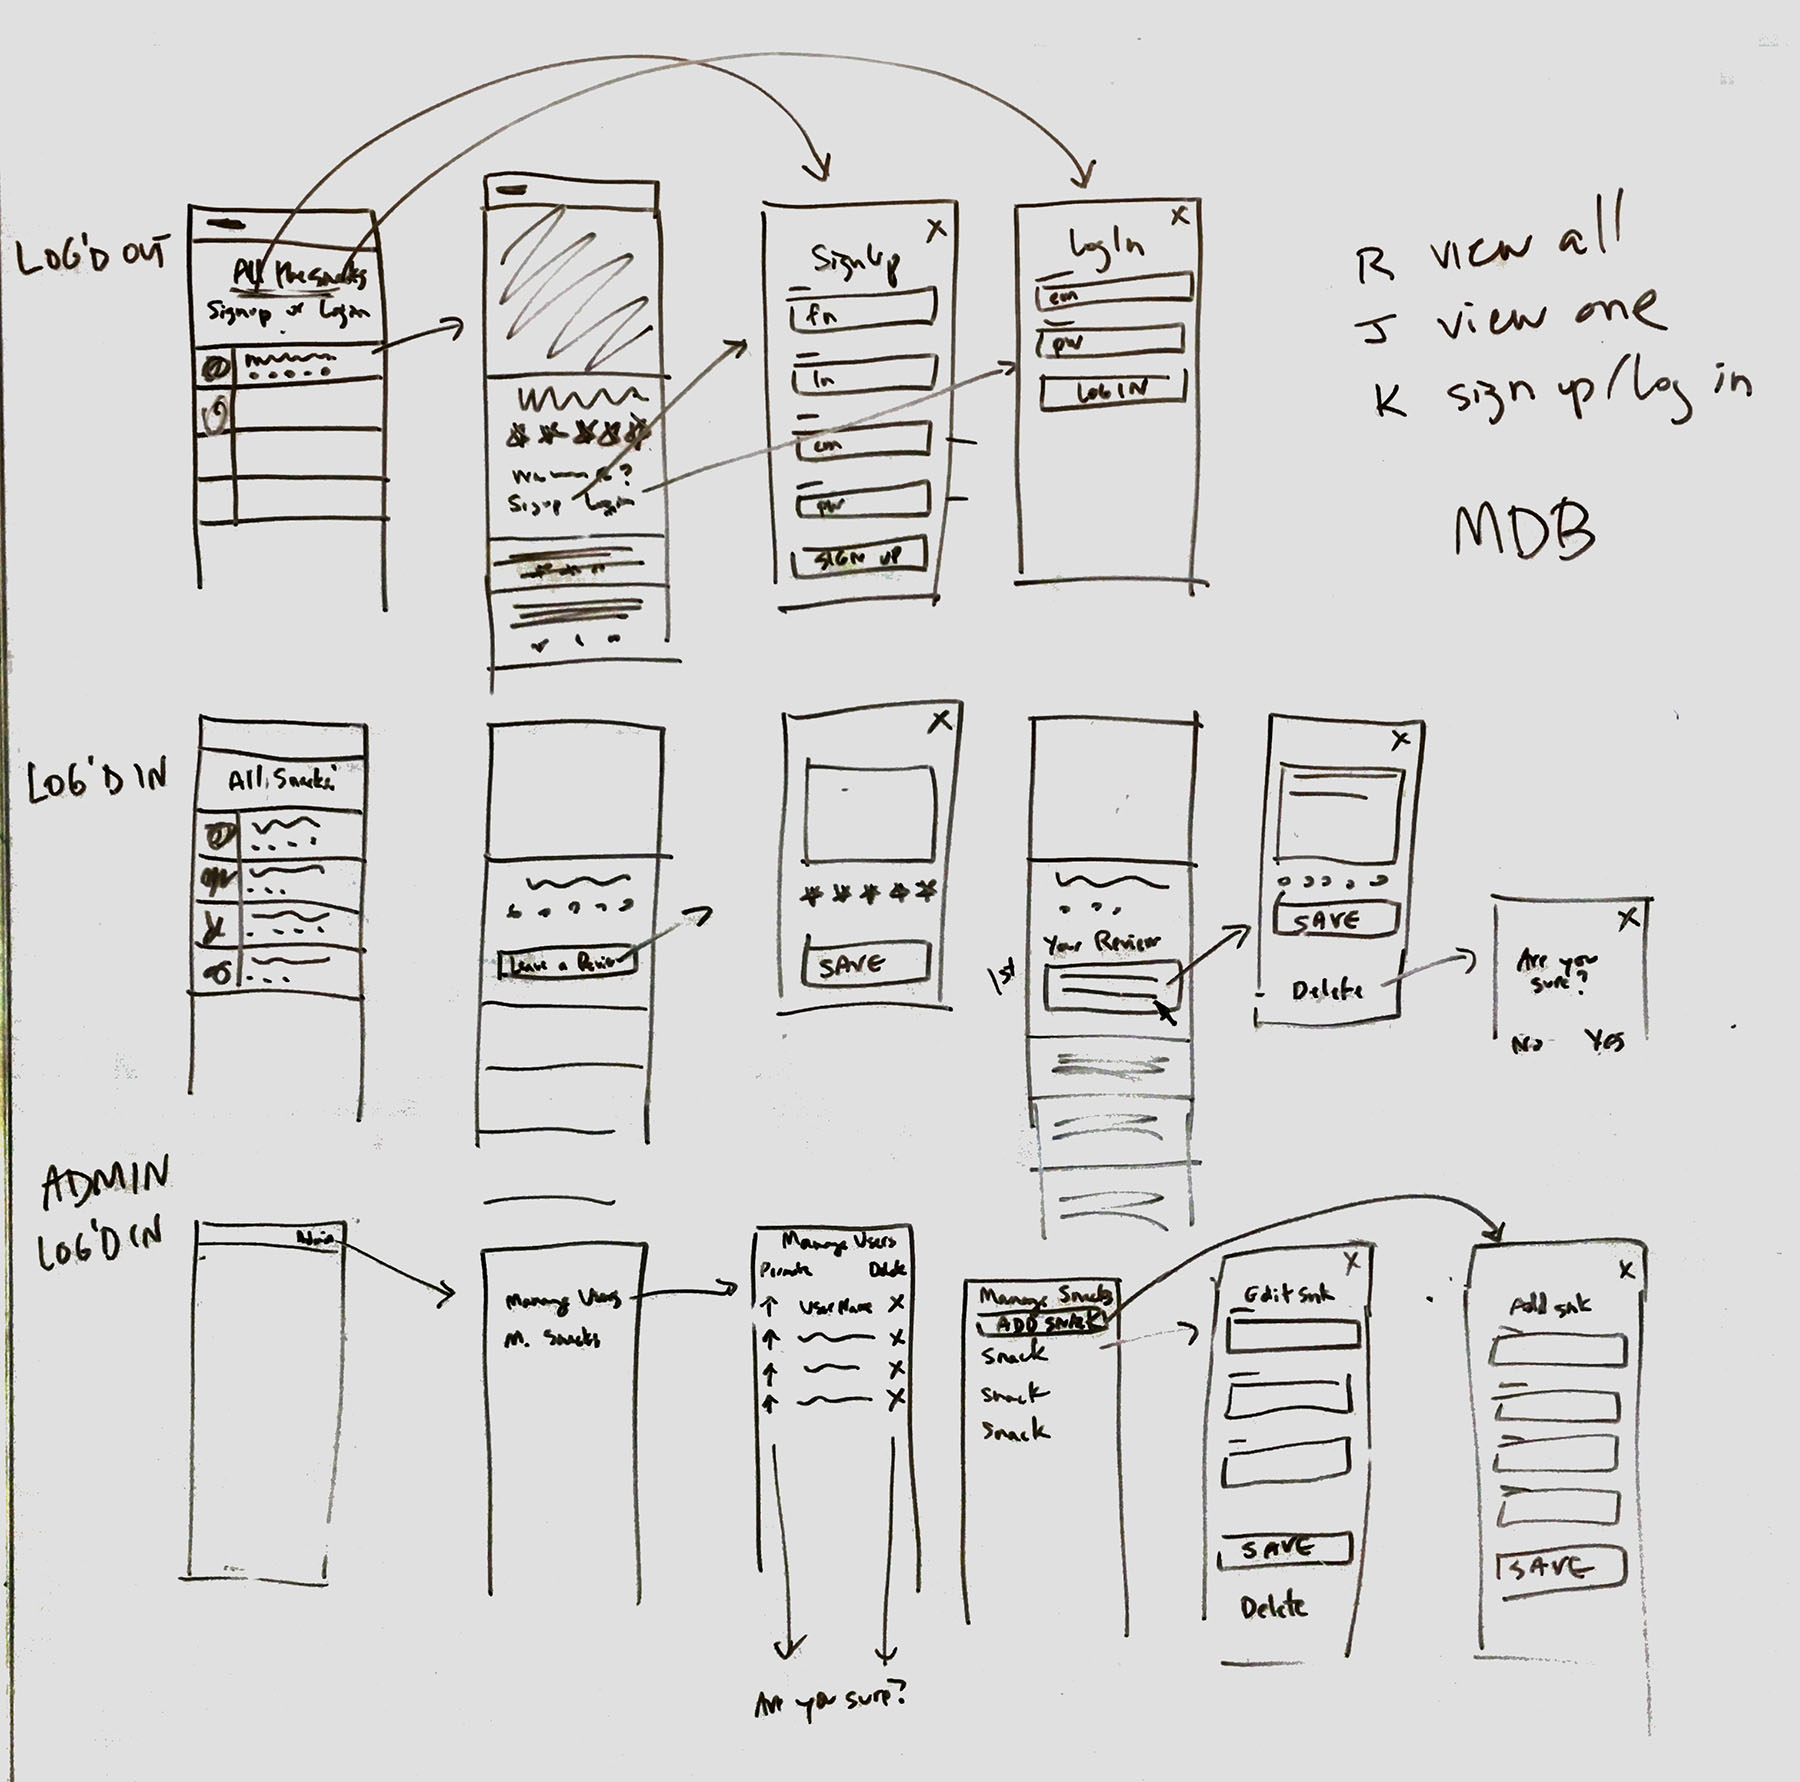 LOG'D OUT
All the snacks
Signup or Login
Signup Login
X
Sign Up
fn
ln
em
pw
SIGN UP
X
Log In
em
pw
LOG IN
R view all
J view one
K sign up/log in
MDB
LOG'D IN
All Snacks
Leave a Review
X
SAVE
1st
Your Review
X
SAVE
Delete
X
Are you
sure?
No Yes
ADMIN
LOG'D IN
Admin
Manage Users
M. Snacks
Manage Users
Promote Delete
User Name X
X
X
X
Are you sure?
Manage Snacks
ADD SNACK
Snack
Snack
Snack
X
Edit Snk
SAVE
Delete
X
Add Snk
SAVE